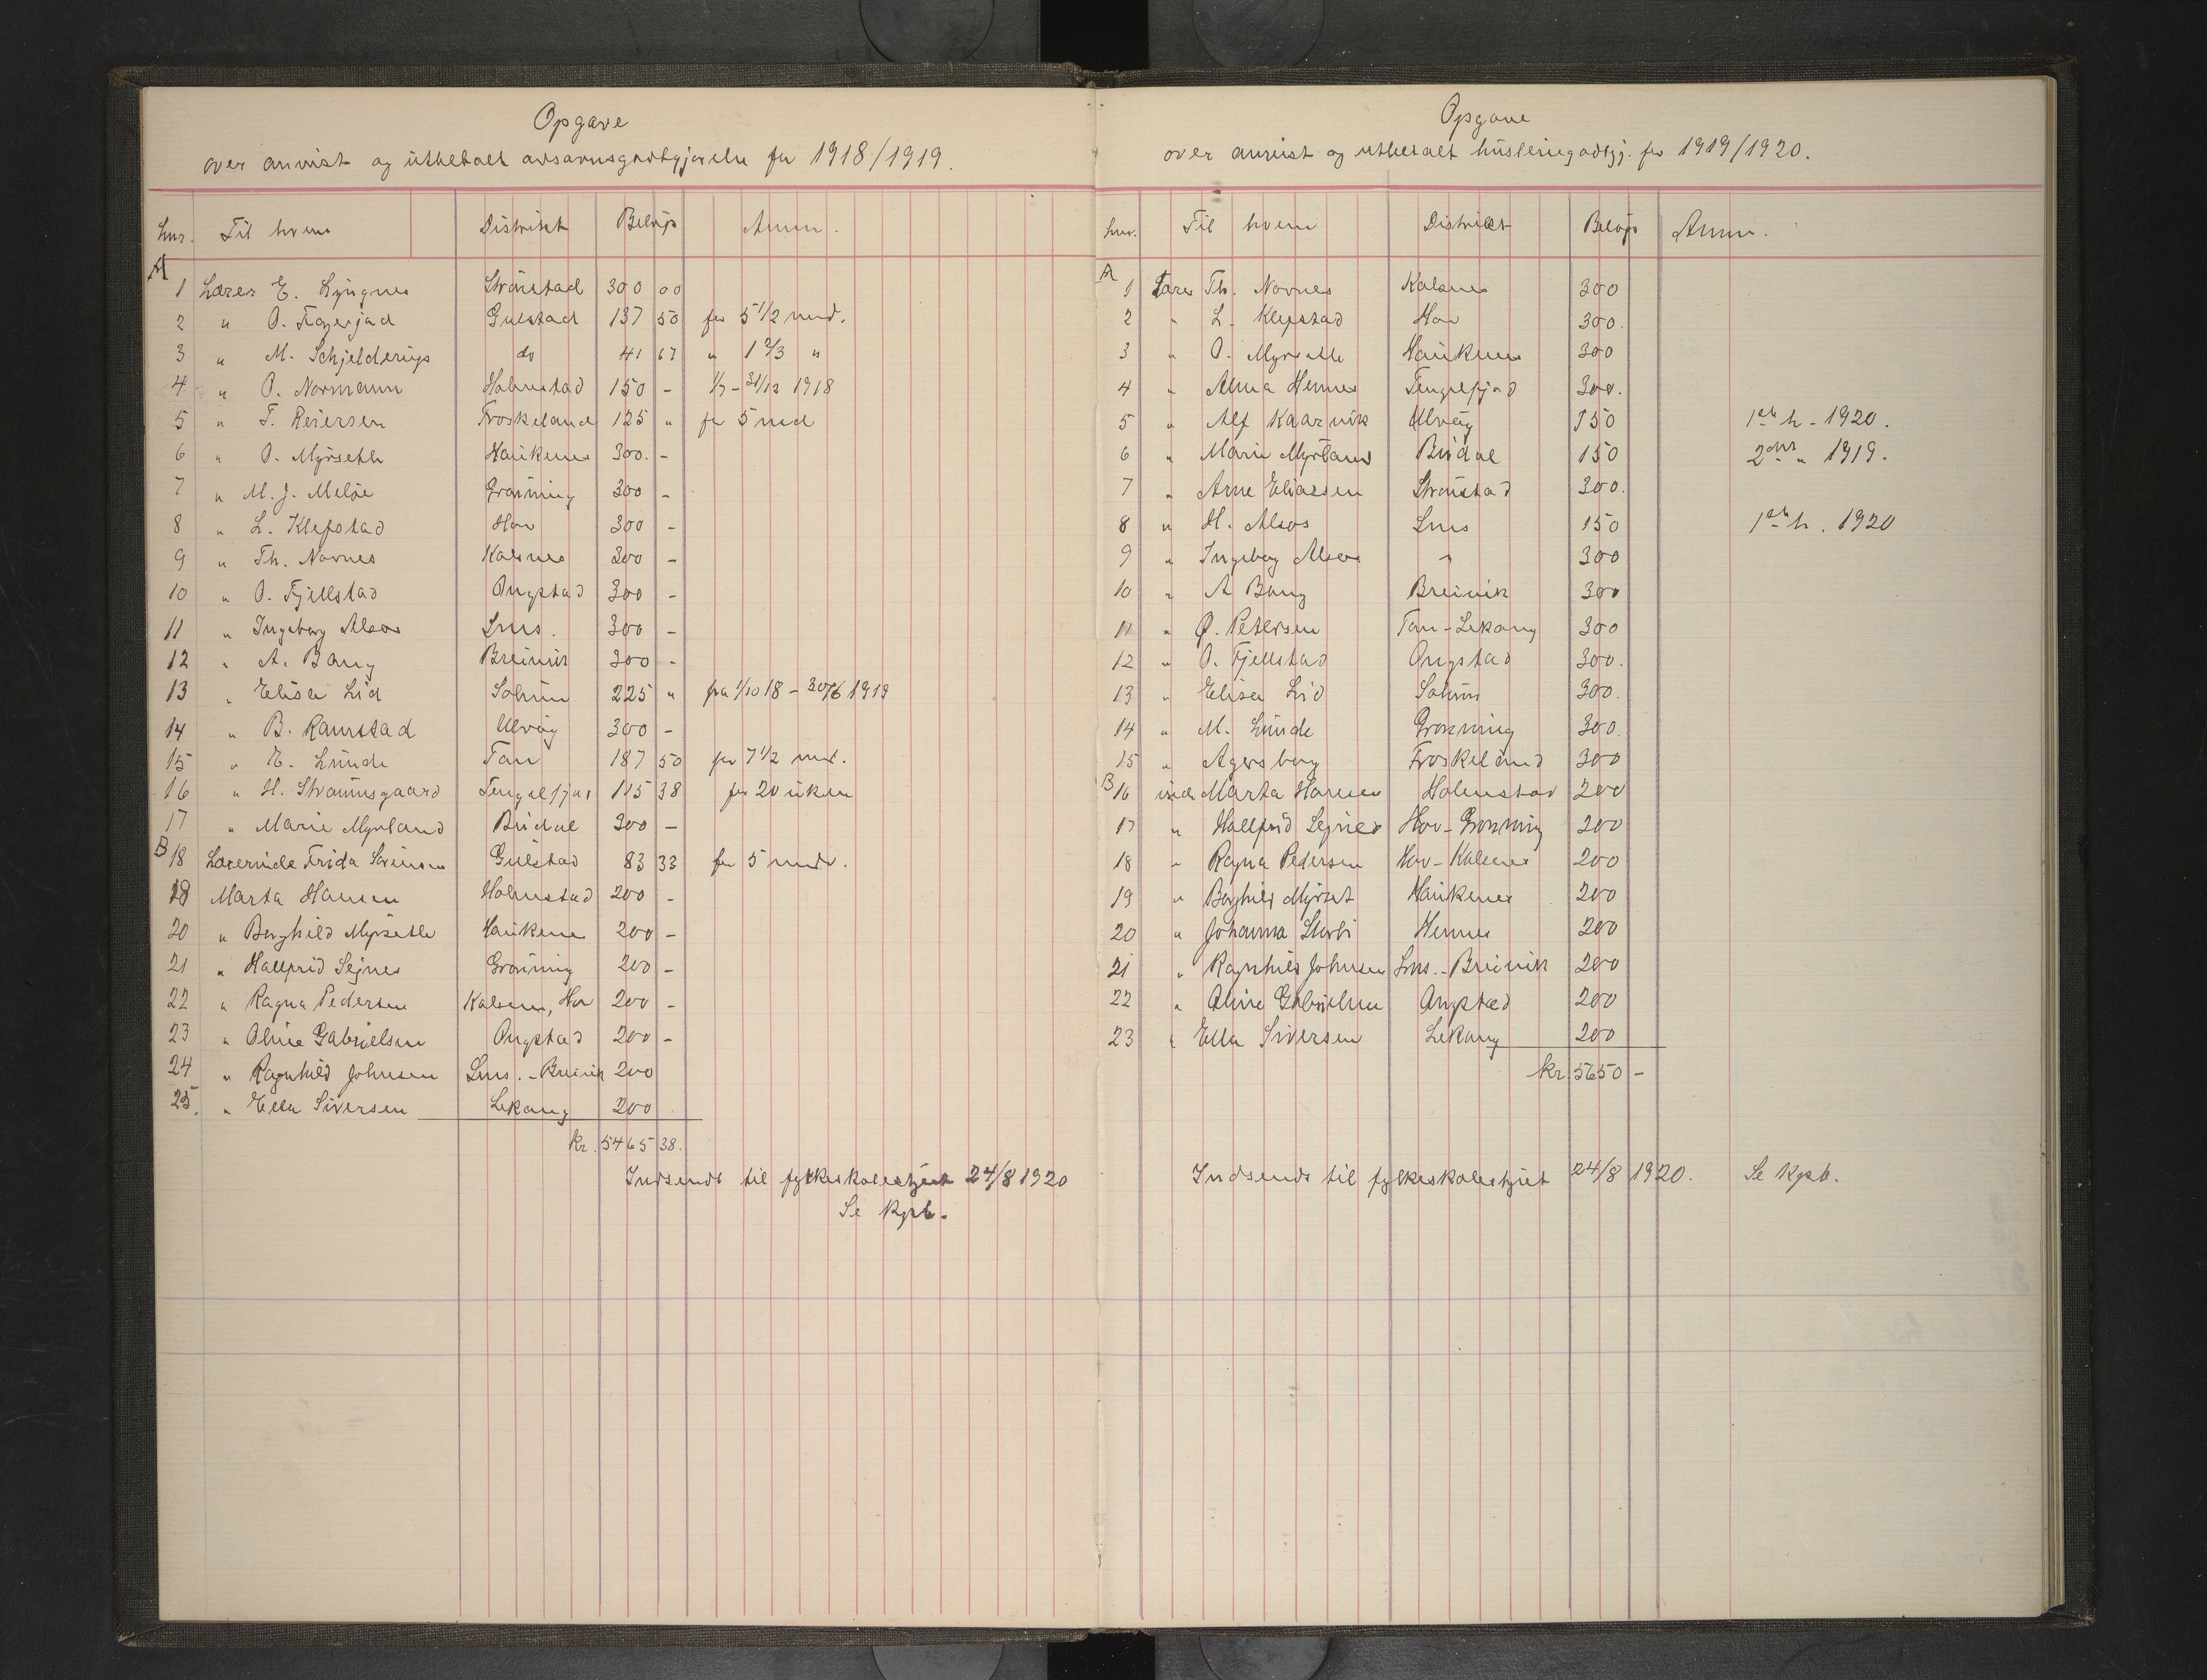 Opgave
over anvist og utbetalt avsavnsgodtgjørelse for 1918/1919.
Lnr. Til hvem Distrikt Beløp Anm.
A
1 Lærer E. Lyngnes Straustad 300 00
2 " O. Gulstad 137 50 for 5 1/2 mnd.
3 " M. Schjelderup do 41 67 " 1 2/3 "
4 " O. Normann Holmstad 150 - 1/7 - 31/12 1918
5 " T. Reiersen Froskeland 125 " for 5 mnd
6 " O. Myrseth Haukenes 300. -
7 " M. J. Meløe Grønning 300 -
8 " L. Klefstad Hov 300 -
9 " Th. Novnes Kalsnes 300 -
10 " O. Fjellstad Ongstad 300 -
11 " Ingeborg Alsos Sms. 300 -
12 " A. Bang Breivik 300 -
13 " Elise Lid Solum 225 " fra 1/10 18 - 30/6 1919
14 " B. Ramstad Ulvøg 300 -
15 " E. Lunde Tan 187 50 for 7 1/2 mnd.
16 " H. Straumsgaard Tengelfjor 115 38 for 20 uker
17 " Marie Myrland Budal 300 -
B 18 Lærerinde Frida Sørensen Gulstad 83 33 for 5 mndr.
19 Marta Hansen Holmstad 200 -
20 " Borghild Myrseth Haukenes 200 -
21 " Hallfrid Sejnes Grønning 200 -
22 " Ragna Pedersen Kalsnes, Hov 200 -
23 " Oline Gabrielsen Ongstad 200 -
24 " Ragnhild Johnsen Sms. - Breivik 200
25. " Ella Siversen Lekang 200
kr. 5465 38.
Indsendt til fylkesskolestyret 24/8 1920
Se Kpb.
Opgave
over anvist og utbetalt husleiegodtgj. for 1919/1920.
Lnr. Til hvem Distrikt Beløp Anm.
A
1 Lærer Th. Novnes Kalsnes 300
2 " L. Klefstad Hov 300.
3 " O. Myrseth Haukenes 300
4 " Alma Hennes Tengelfjord 300.
5 " Alf Kaarvik Ulvøg 150 1ste h. 1920.
6 " Marie Myrland Budal 150 2det " 1919.
7 " Arne Eliassen Straustad 300.
8 " H. Alsos Sms 150 1ste h. 1920
9 " Ingeborg Alsos " 300
10 " A Bang Breivik 300
11 " O. Petersen Tan-Lekang 300
12 " O. Fjellstad Ongstad 300.
13 " Elise Lid Solum 300.
14 " M. Lunde Grønning 300.
15 " Agersborg Froskeland 300
B 16 inde Marta Hansen Holmstad 200
17 " Hallfrid Sejnes Hov-Grønning 200
18 " Ragna Pedersen Hov-Kalsnes 200
19 " Borghild Myrset Haukenes 200
20 " Johanna Hennes 200
21 " Ragnhild Johnsen Sms. - Breivik 200
22 " Oline Gabrielsen Ongstad 200
23 " Ella Siversen Lekang 200
kr. 5650 -
Indsendt til fylkesskolestyret 24/8 1920. Se Kpb.